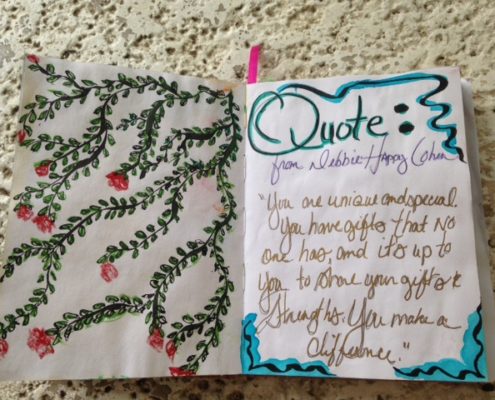 Quote:
from Debbie Happy Cohen
"You are unique and special.
You have gifts that no
one has, and it's up to
you to share your gifts &
strengths. You make a
difference."